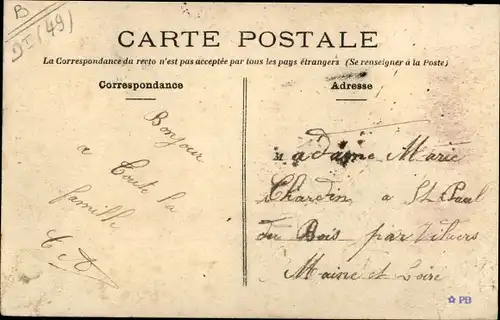 B
DT (49)
CARTE POSTALE
La Correspondance du recto n'est pas acceptée par tous les pays étrangers (Se renseigner à la Poste)
Correspondance
Bonjour
a Toute la
famille
Adresse
Madame Marie
Chardin a St Paul
du Bois par Vihiers
Maine et Loire
PB